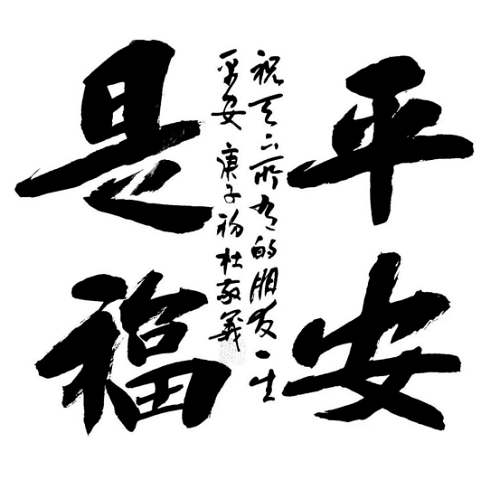 平安
祝天下所有的朋友一生
平安 庚子初杜敬義
是福